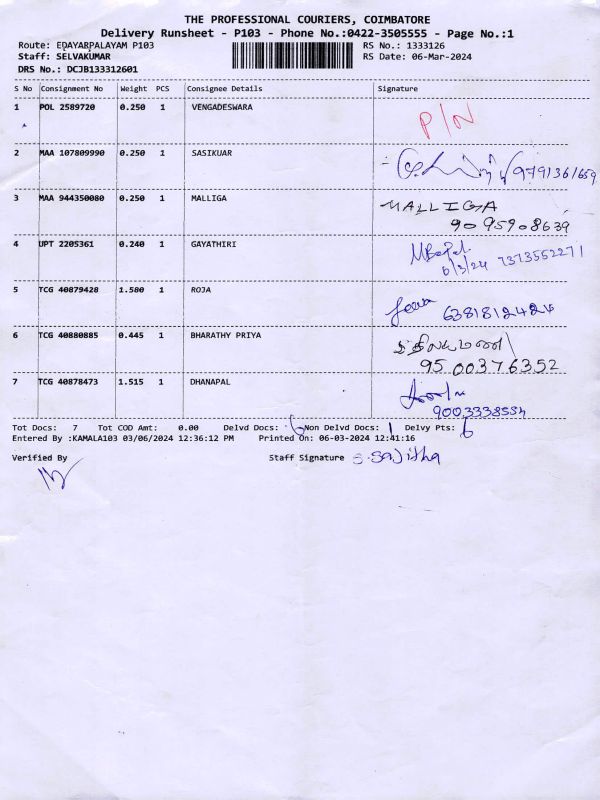 THE PROFESSIONAL COURIERS, COIMBATORE
Delivery Runsheet - P103 - Phone No.:0422-3505555 - Page No.:1
Route: EDAYARPALAYAM P103 RS No.: 1333126
Staff: SELVAKUMAR RS Date: 06-Mar-2024
DRS No.: DCJB133312601
S No Consignment No Weight PCS Consignee Details Signature
1 POL 2589720 0.250 1 VENGADESWARA
P/N
2 MAA 107809990 0.250 1 SASIKUAR
9791361659
3 MAA 944350080 0.250 1 MALLIGA MALLIGA
9095908639
4 UPT 2205361 0.240 1 GAYATHIRI
6/3/24 7373552271
5 TCG 40879428 1.580 1 ROJA
6 TCG 40880885 0.445 1 BHARATHY PRIYA
9500376352
7 TCG 40878473 1.515 1 DHANAPAL
9003338554
Tot Docs: 7 Tot COD Amt: 0.00 Delvd Docs: 6 Non Delvd Docs: 1 Delvy Pts: 6
Entered By :KAMALA103 03/06/2024 12:36:12 PM Printed On: 06-03-2024 12:41:16
Verified By Staff Signature S. Sajitha